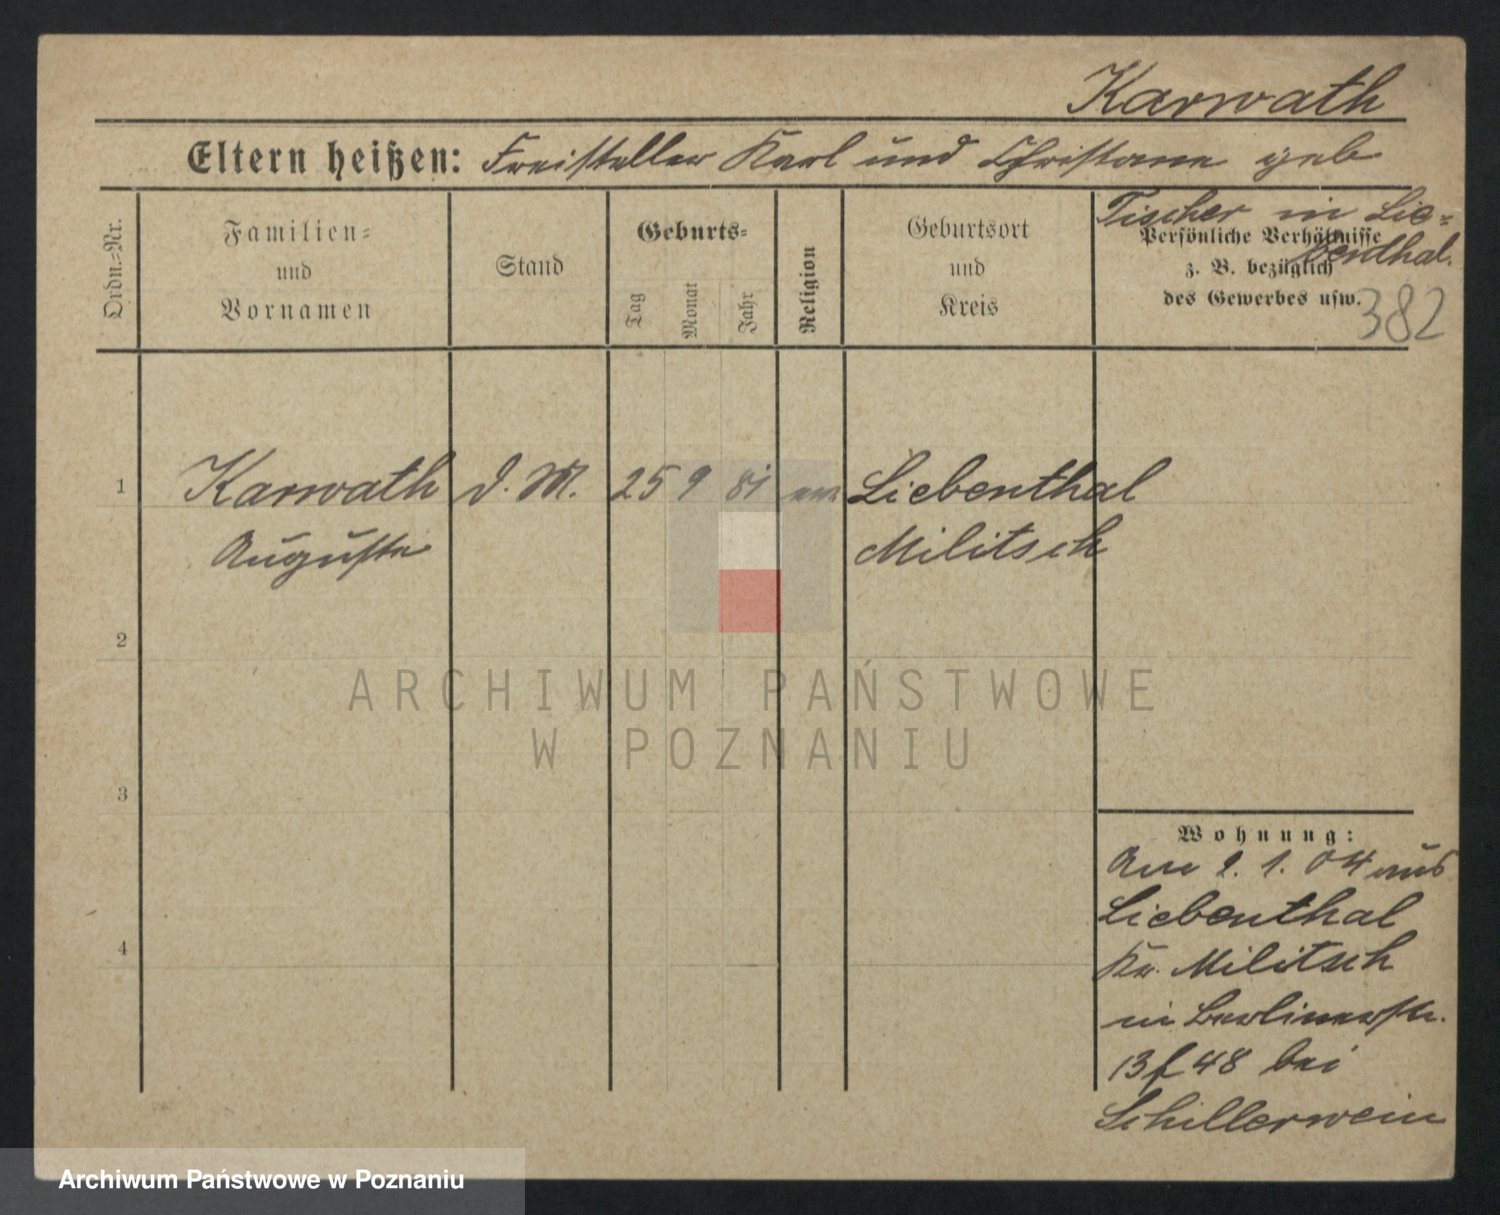 Karwath
Eltern heißen: Freisteller Karl und Christane geb
Tischer in Lie=
benthal.
Ordn.=Nr.
Familien=
und
Vornamen
Stand
Geburts=
Tag
Monat
Jahr
Religion
Geburtsort
und
Kreis
Persönliche Verhältnisse
z. B. bezüglich
des Gewerbes usw.
382
1 Karwath d. M. 25 9 81 Liebenthal
Auguste Militsch
2
3
4
Wohnung:
Am 2. 1. 04 aus
Liebenthal
Kr. Militsch
in Berlinerstr.
13 f 48 bei
Schillerwein
ARCHIWUM PAŃSTWOWE
W POZNANIU
Archiwum Państwowe w Poznaniu